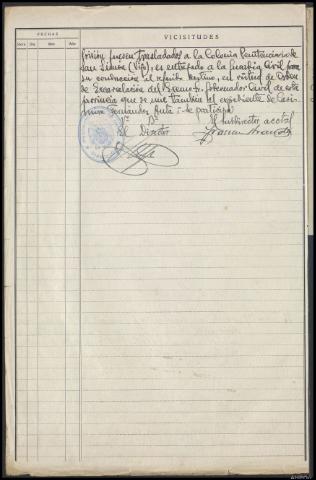 FECHAS
VICISITUDES
Hora Día Mes Año
prisión fuesen trasladados a la Colonia Penitenciaria de
San Simón (Vigo), es entregado a la Guardia Civil para
su conducción al referido destino, en virtud de Orden
de Excarcelación del Excmo. Sr. Gobernador Civil de esta
provincia que se une también al expediente de
V.º B.º
El Director
El Subdirector